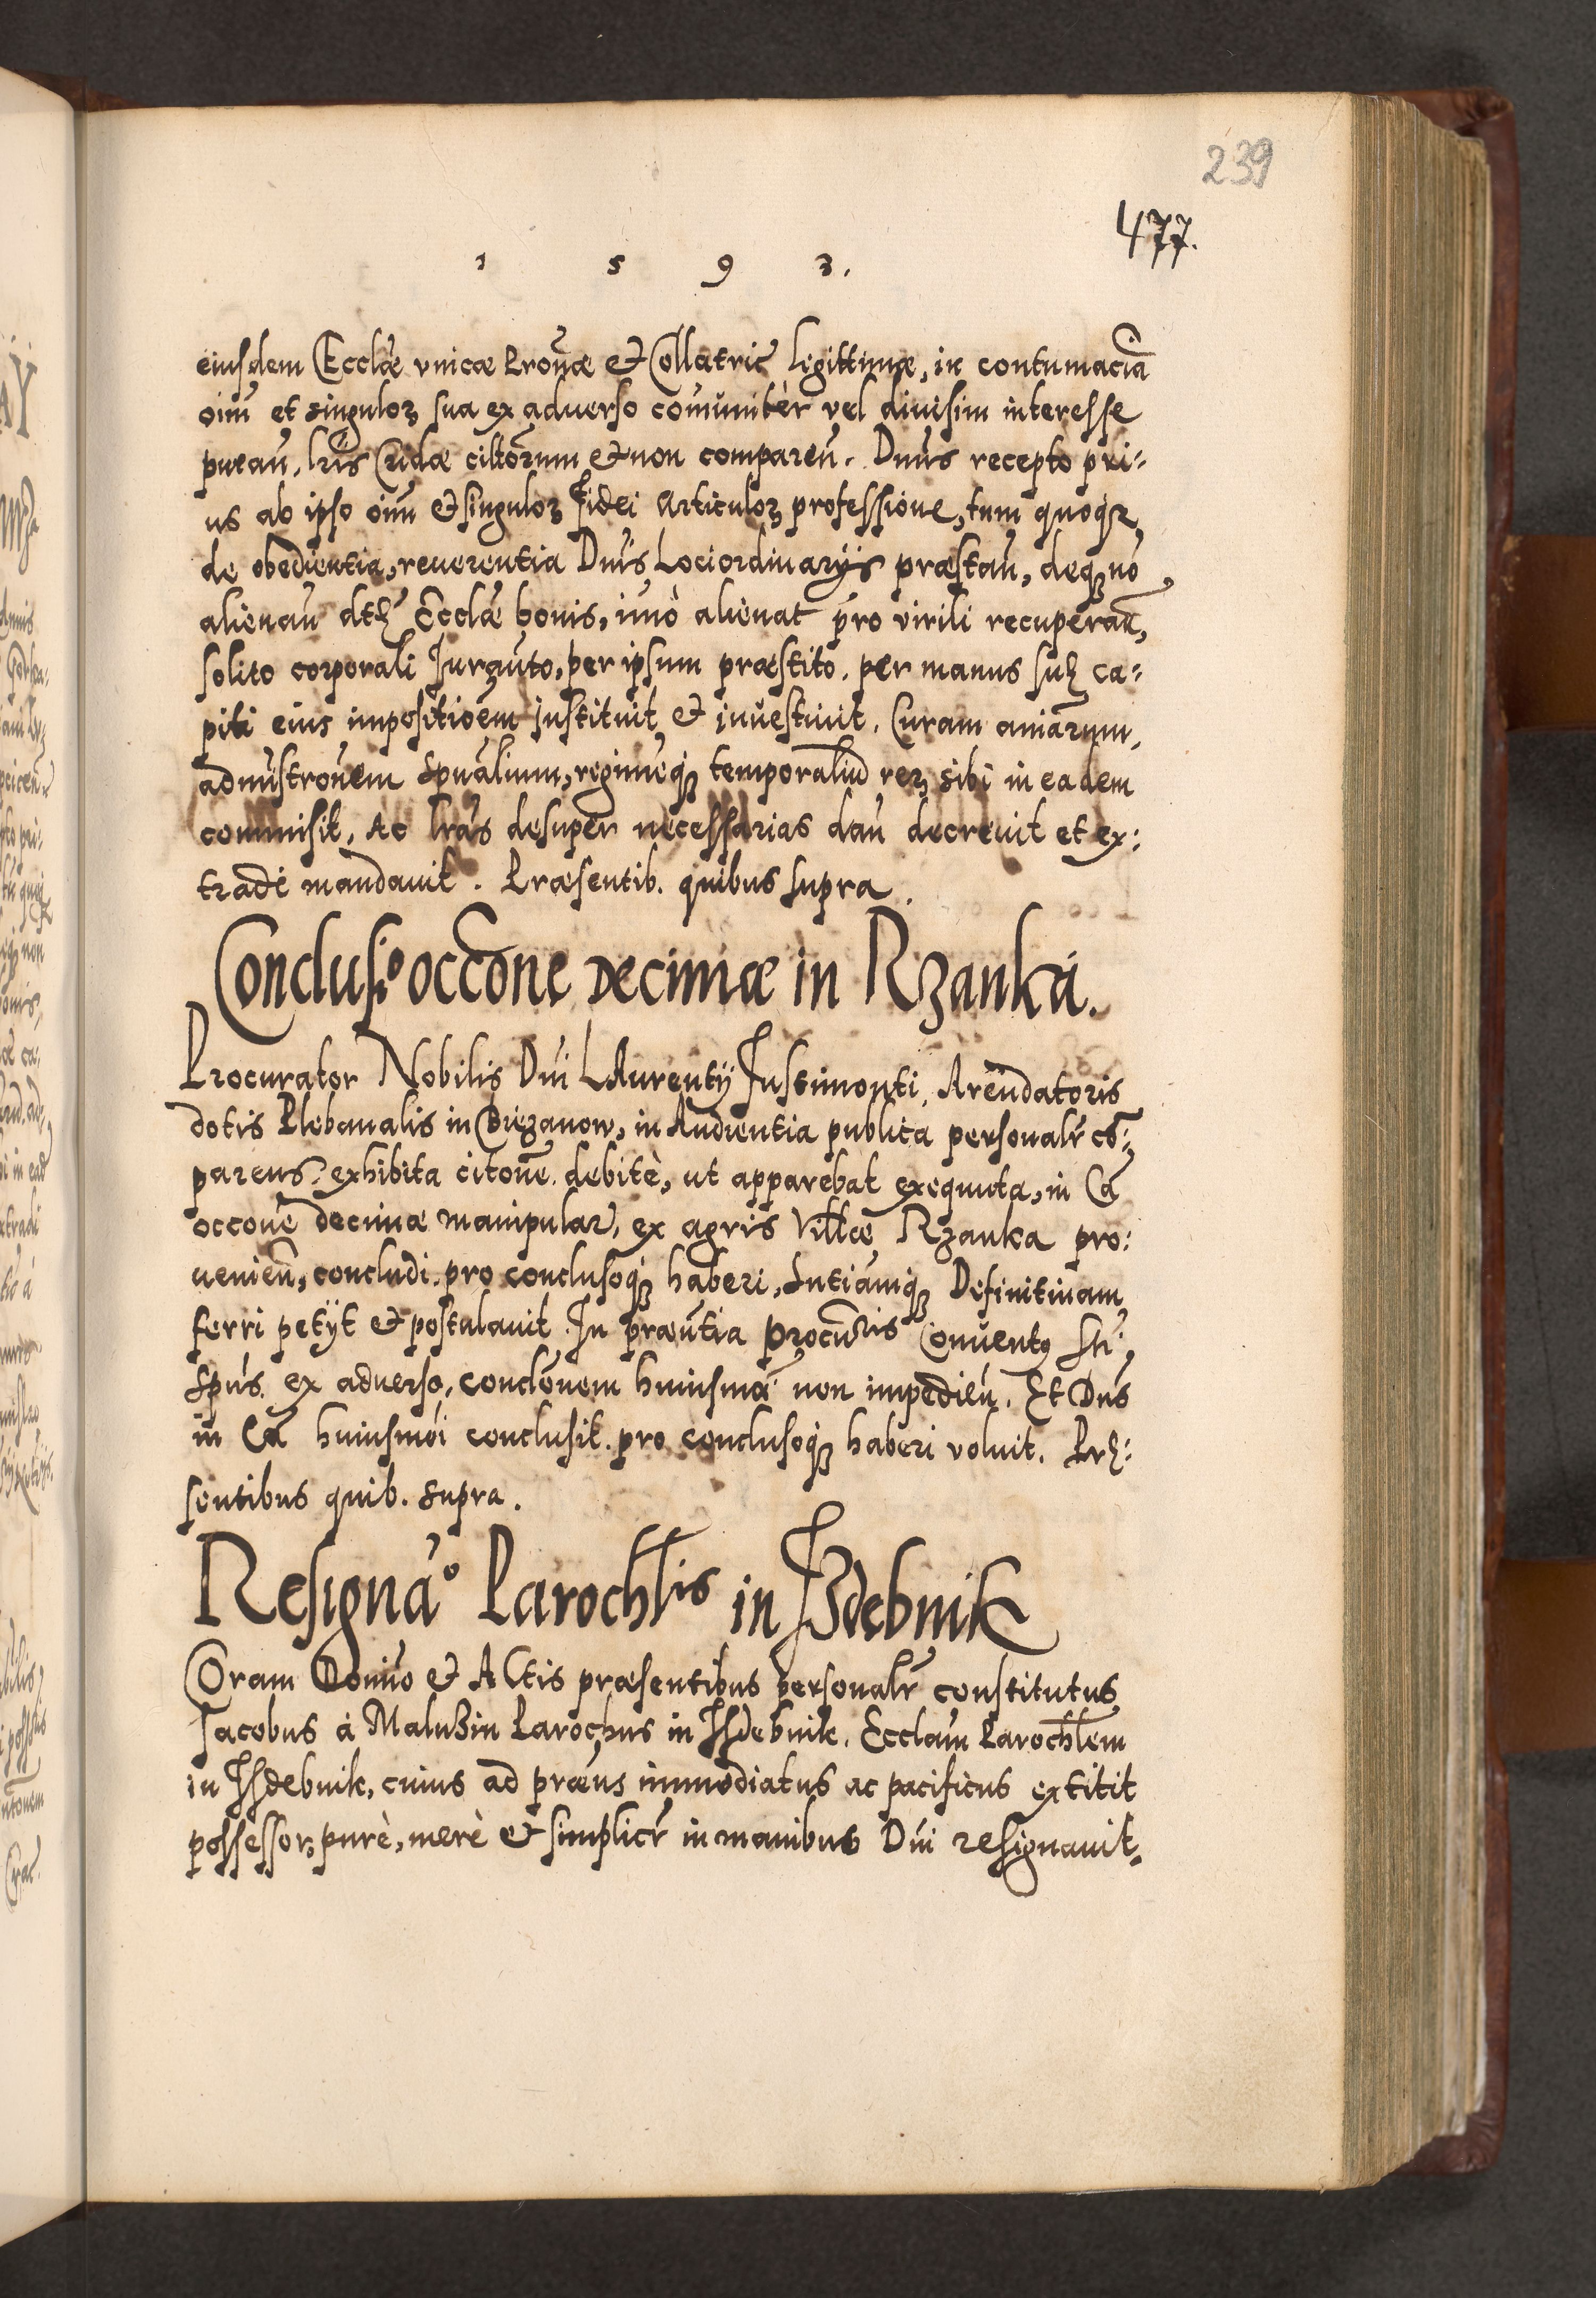 239
477.
1 5 9 3.
eiusdem Ecclæ vnicæ Pronæ & Collatric legittimæ, in contumaciã
oim̃ et singuloꝝ sua ex aduerso cõmuniter vel diuisim interesse
putañ, lr̃is Cridæ citt̃orum & non compareñ. Dnũs recepto pri-
us ab ipso oim̃ & singuloꝝ Fidei Articuloꝝ professione, tum quoqꝫ
de obedientia, reuerentia Dnĩs Lociordinarijs præstañ, deqꝫ nõ
alienañ dctę Ecclæ bonis, imò alienat pro virili recuperañ,
solito corporali Iurañto, per ipsum præstito, per manus suę ca-
piti eius impositioẽm instituit & inuestiuit. Curam aniãrum,
admĩstronem Spũalium, regimẽqꝫ temporaliũ reꝝ sibi in eadem
commisit, Ac lrãs desuper necessarias dañ decreuit et ex-
tradi mandauit. Præsentib. quibus supra.
Conclusio occõne decimæ in Rzanka.
Procurator Nobilis Dñi LAurentij Justimonti, Arendatoris
dotis Plebanalis in Biezanow, in Audientia publica personalr̃ cõ-
parens, exhibita citone debitè, ut apparebat exequuta, in Cã
occone decimæ manipular, ex agris Villæ Rzanka pro-
ueniẽn, concludi, pro conclusoqꝫ haberi, Sntiamqꝫ Definitiuam
ferri petijt & postulauit. In præñtia Procuris Conuentꝰ Sti
Spũs ex aduerso, conclonem huiusmõi non impedieñ. Et Dnũs
in Cã huiusmõi conclusit, pro conclusoqꝫ haberi voluit. Prę-
sentibus quib. supra.
Resignao Parochlis in Jzdebnik
Coram Domino & ACtis præsentibus personalr̃ constitutus
Jacobus à Maluszin Parochus in Jsdebnik. Ecclam Parochlem
in Jsdebnik, cuius ad præns immediatus ac pacificus extitit
possessor, purè, merè & simplicr̃ in manibus Dñi resignauit,